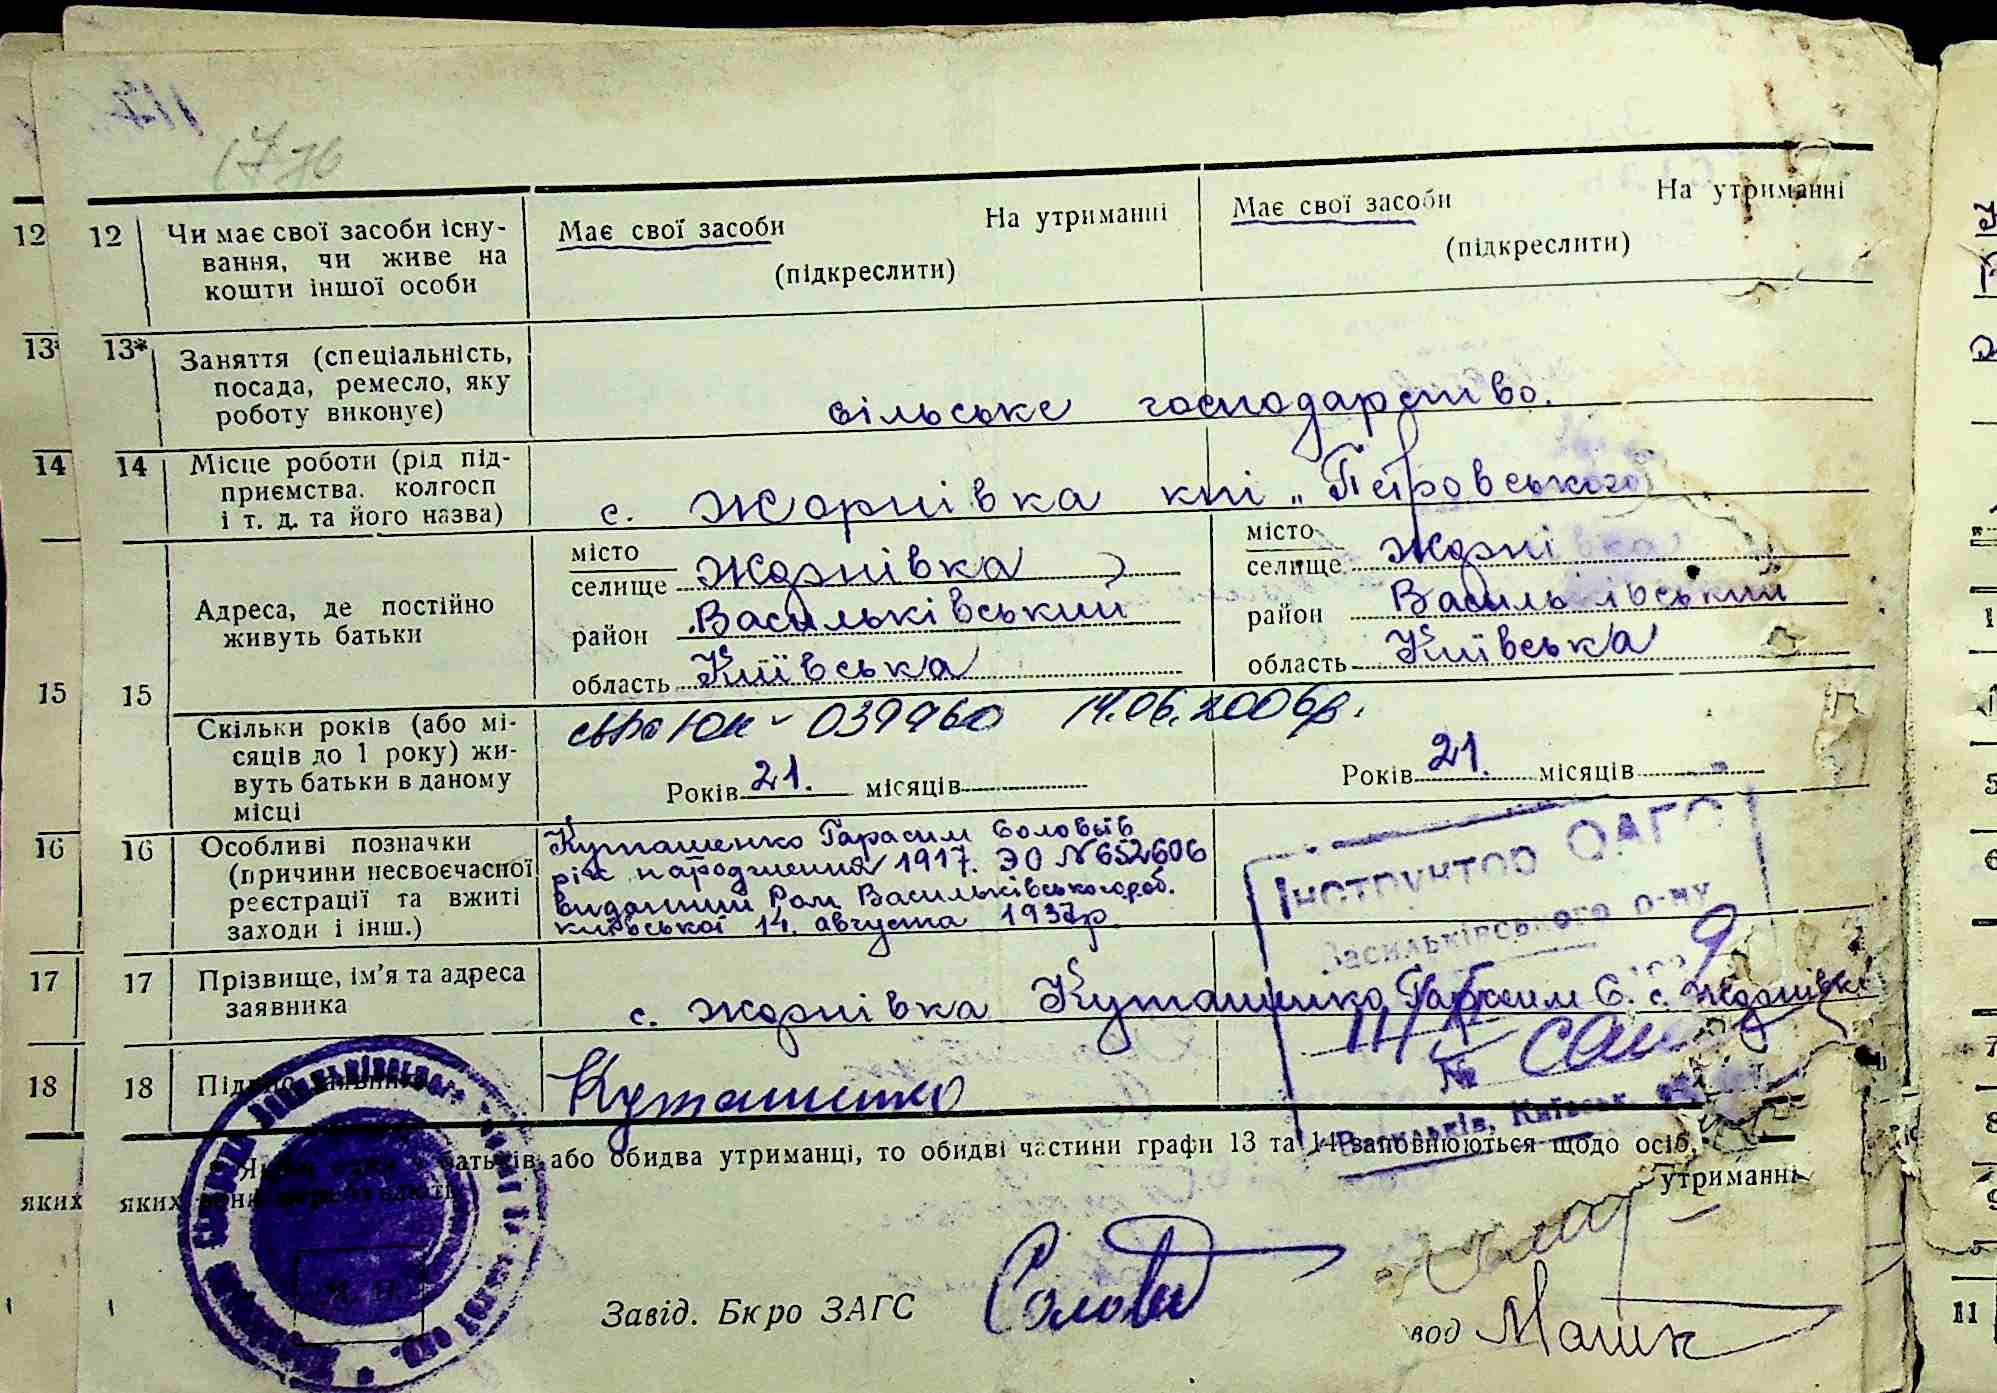 12 12 Чи має свої засоби існу- Має свої засоби На утриманні Має свої засоби На утриманні
вання, чи живе на (підкреслити) (підкреслити)
кошти іншої особи
13* 13* Заняття (спеціальність,
посада, ремесло, яку
роботу виконує) сільське господарство.
14 14 Місце роботи (рід під-
приємства, колгосп
і т. д. та його назва) с. Жорнівка кпі „Петровського
місто місто
селище Жорнівка селище Жорнівка
Адреса, де постійно
живуть батьки район Васильківський район Васильківський
область Київська область Київська
15 15
Скільки років (або мі- 039960 14.06.2006р.
сяців до 1 року) жи-
вуть батьки в даному Років 21. місяців Років 21. місяців
місці
16 16 Особливі позначки Куташенко Гарасим Соловєів
(причини несвоєчасної рік народження 1917. ЭО №652606
реєстрації та вжиті виданний Ром Васильківського роб.
заходи і інш.) київської 14. августа 1937р
Інструктор ОАГС
Васильківського р-ну
17 17 Прізвище, ім'я та адреса
заявника с. Жорнівка Куташенко Гарасим С. с. Жорнівка
№
18 18 Підпис заявника Куташенко
Васильків, Київськ.
батьків або обидва утриманці, то обидві частини графи 13 та 14 заповнюються щодо осіб,
яких яких вони утриманні
М. П.
Завід. Бюро ЗАГС
вод
11